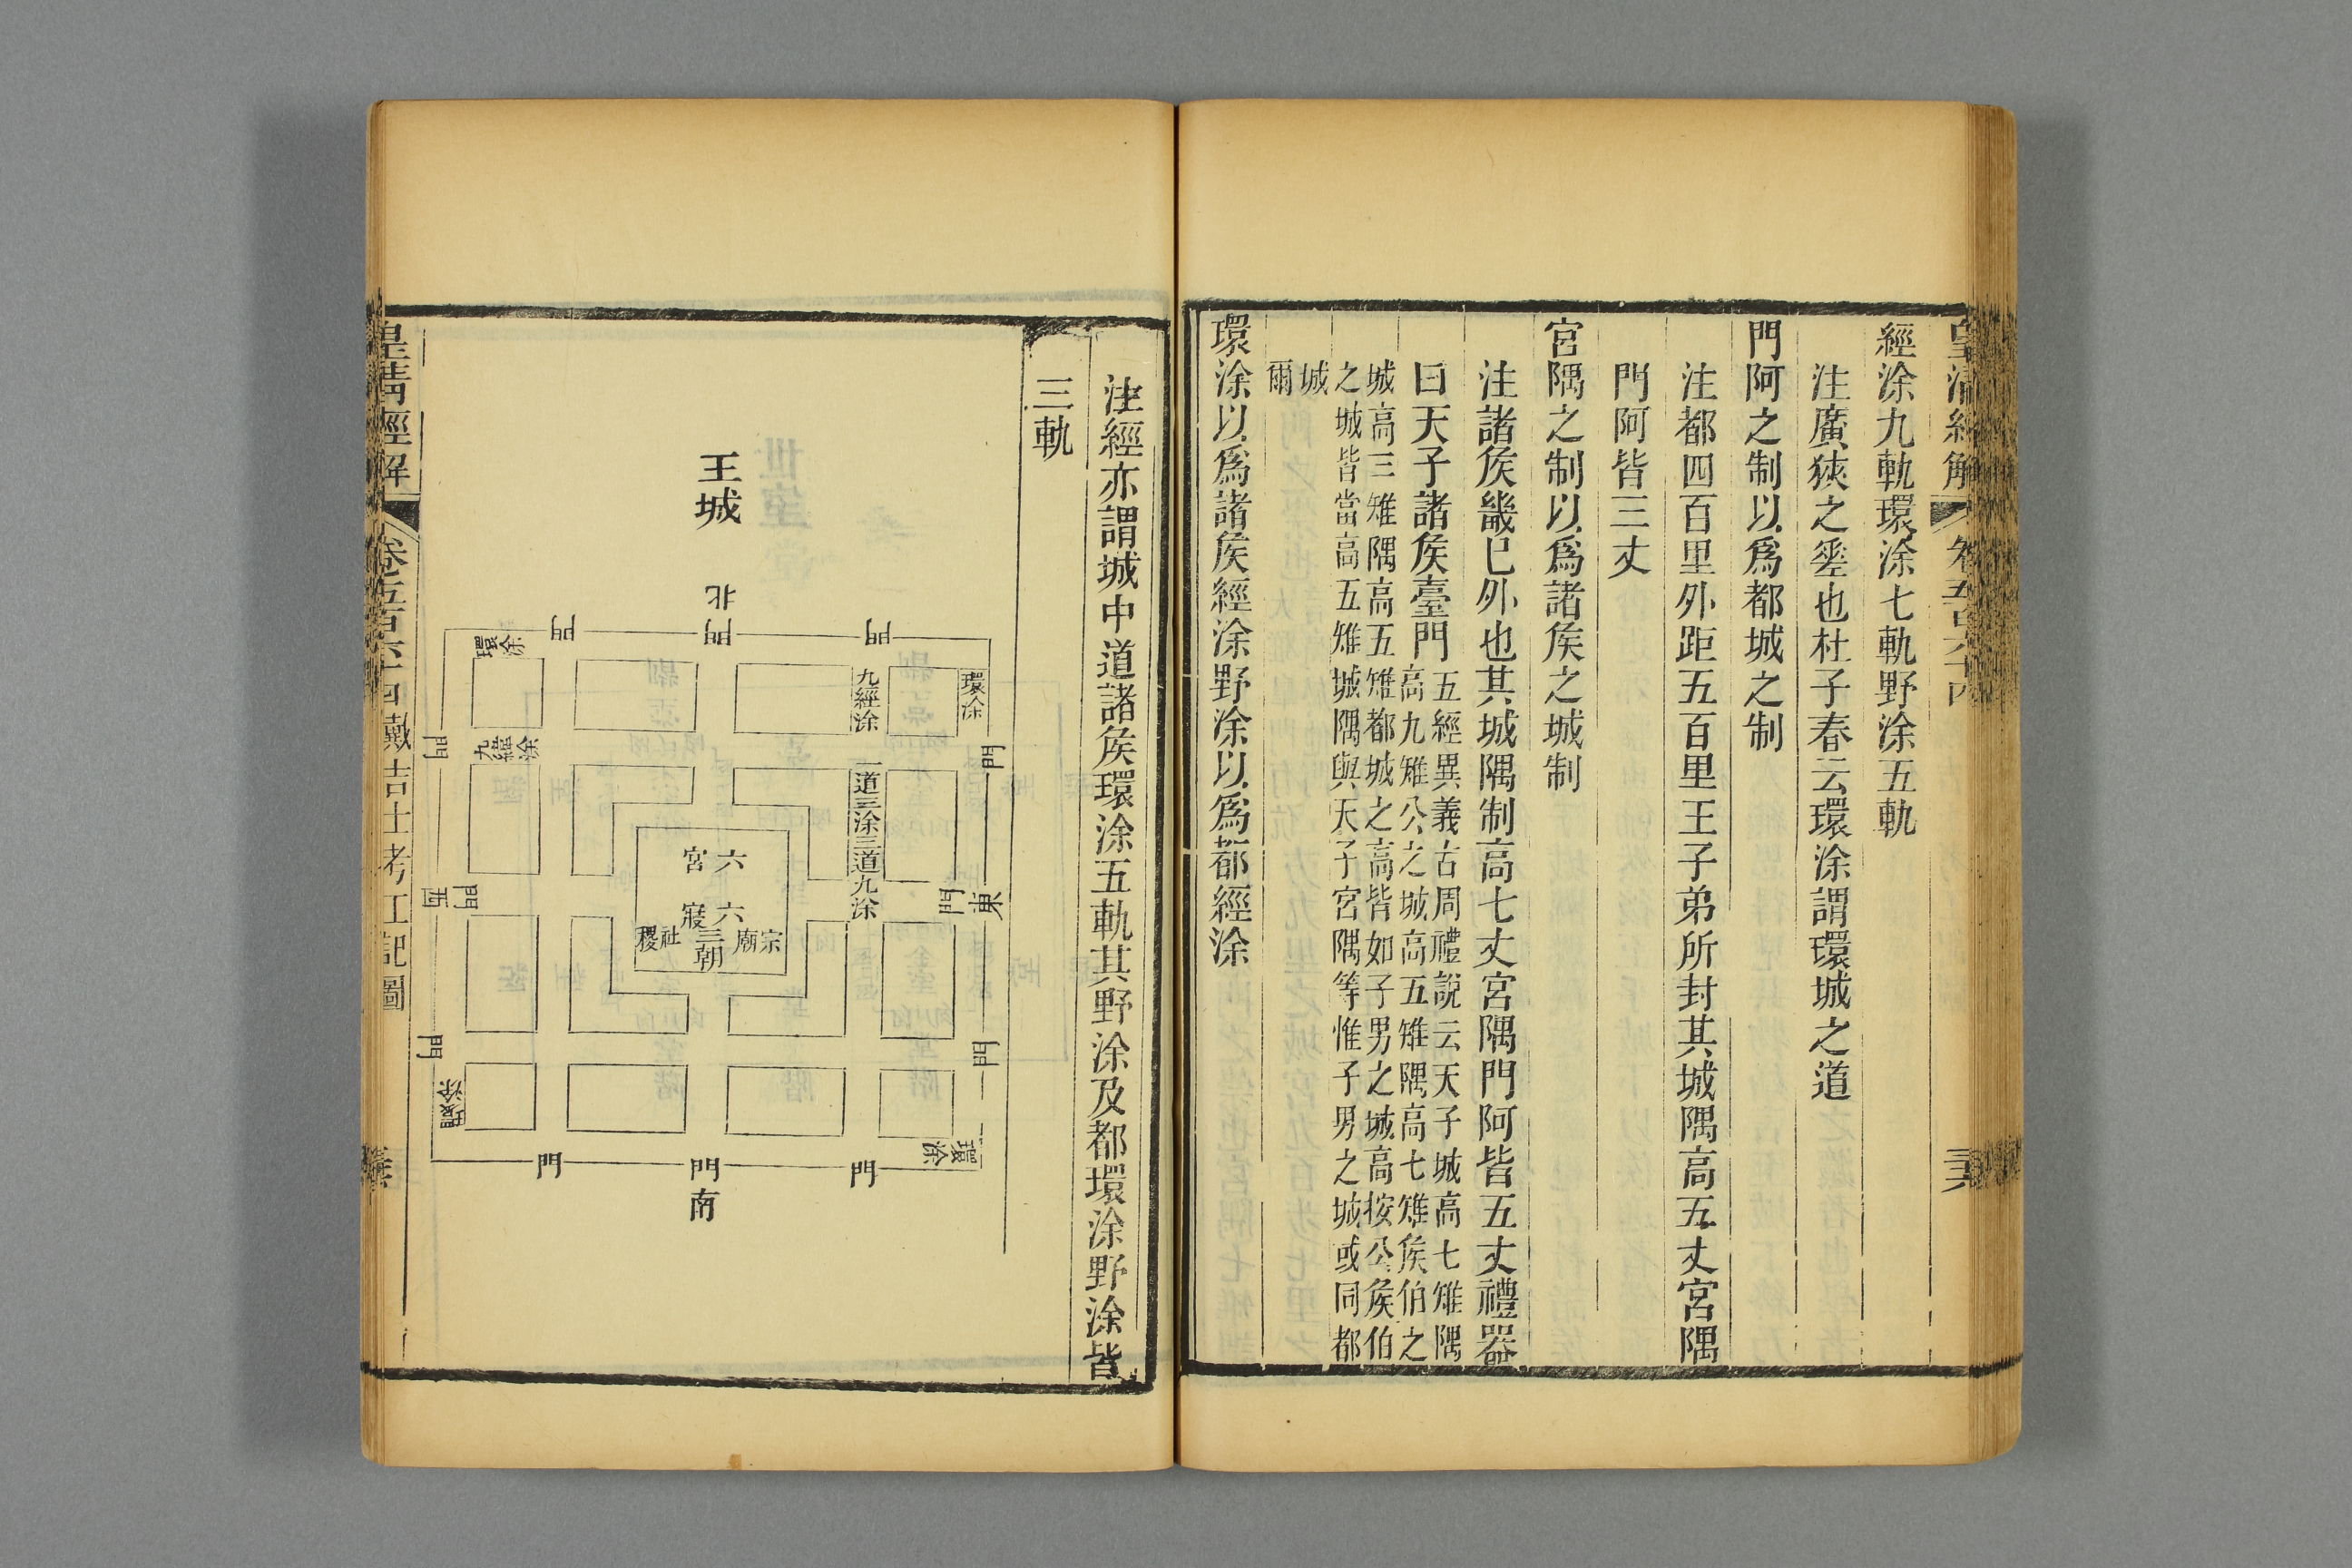 皇清經解
經涂九軌環涂七軌野涂五軌
注廣狹之𡍼也杜子春云環涂謂環城之道
門阿之制以爲都城之制
注都四百里外距五百里王子弟所封其城隅高五丈宮隅
門阿皆三丈
宮隅之制以爲諸矦之城制
注諸矦畿已外也其城隅制高七丈宮隅門阿皆五丈禮器
曰天子諸矦臺門
五經異義古周禮說云天子城高七雉隅
高九雉公之城高五雉隅高七雉矦伯之
城高三雉隅高五雉都城之高皆如子男之城高按公矦伯
之城皆當高五雉城隅與天子宮隅等惟子男之城或同都
城
爾
環涂以爲諸矦經涂野涂以爲都經涂
注經亦謂城中道諸矦環涂五軌其野涂及都環涂野涂皆
三軌
王城
北
門
門
門
環涂
環涂
九經涂
門
門
九緯涂
一道三涂三道九涂
六宮
六寢
東
門
門
西
宗廟
三朝
社稷
門
門
環涂
環涂
門
門
門
南
皇清經解
卷五百六十四戴吉士考工記圖